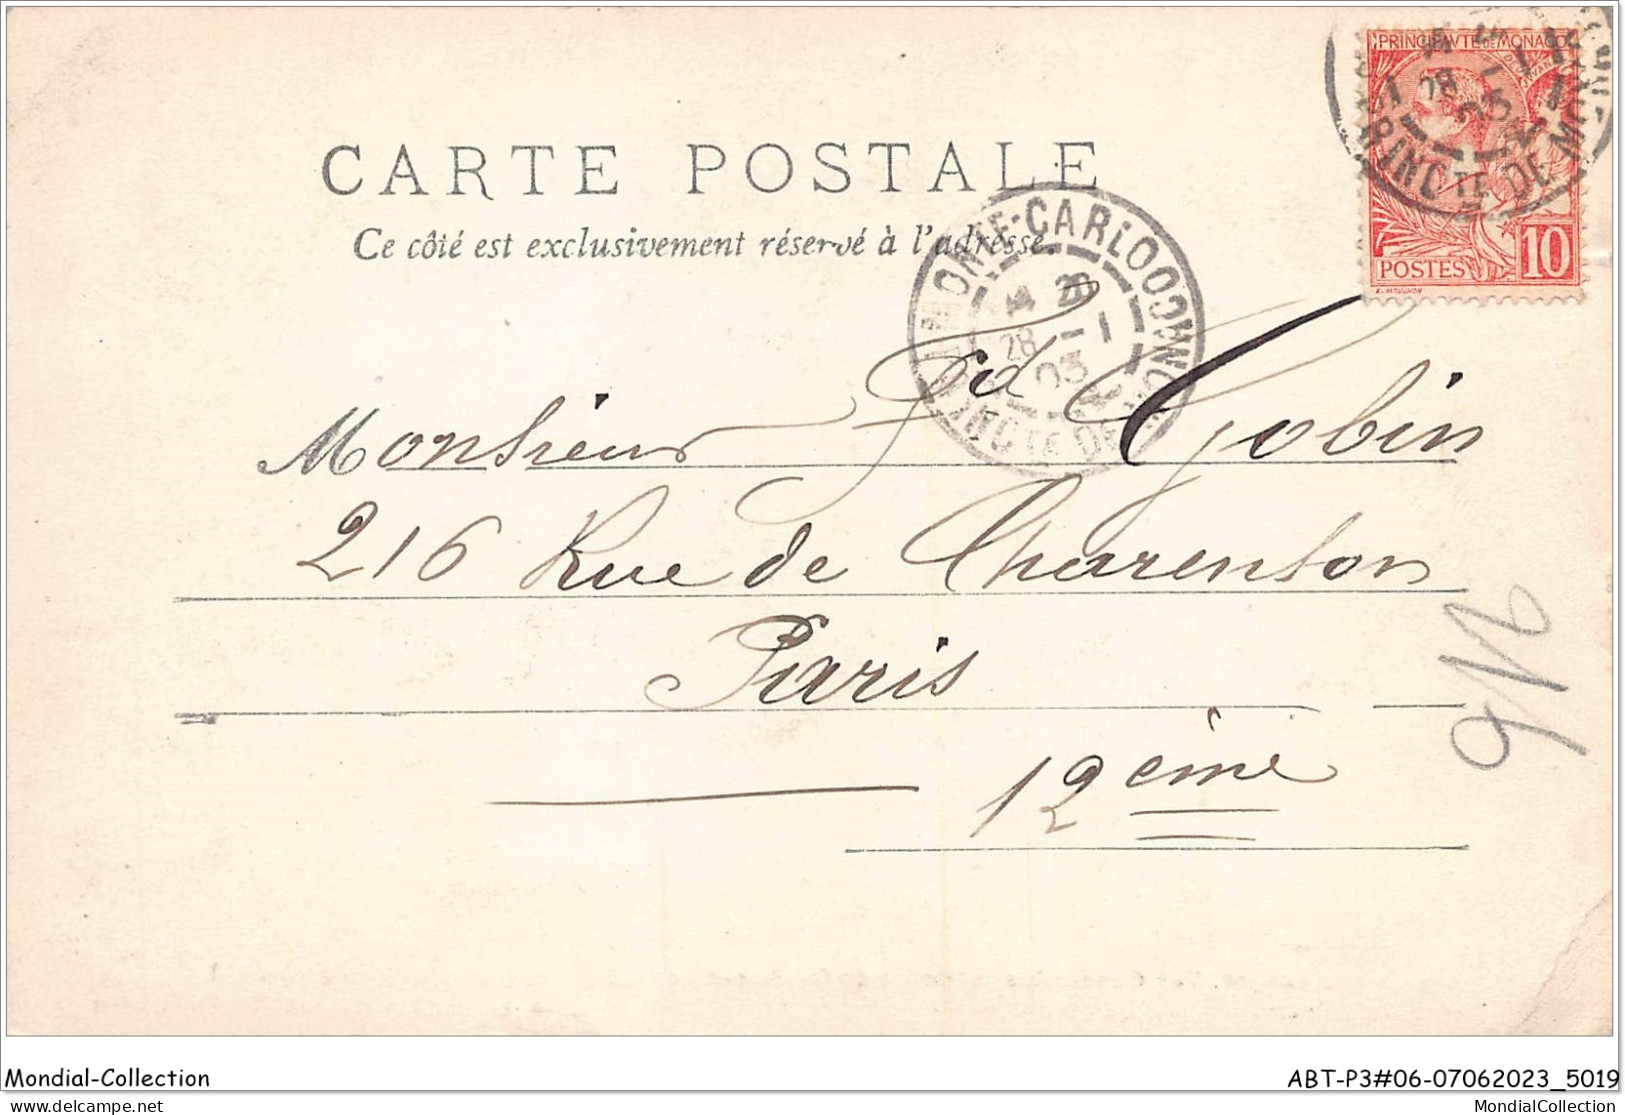 PRINCIPAVTE DE MONACO
28
03
PRINCTÉ DE
POSTES 10
E. MOUCHON
CARTE POSTALE
Ce côté est exclusivement réservé à l'adresse.
MONTE-CARLO
28 -1
03
PRINCTÉ DE
Monsieur Gd Gobin
216 Rue de Charenton
Paris
12ème
Mondial-Collection
ABT-P3#06-07062023_5019
delcampe.net
MondialCollection